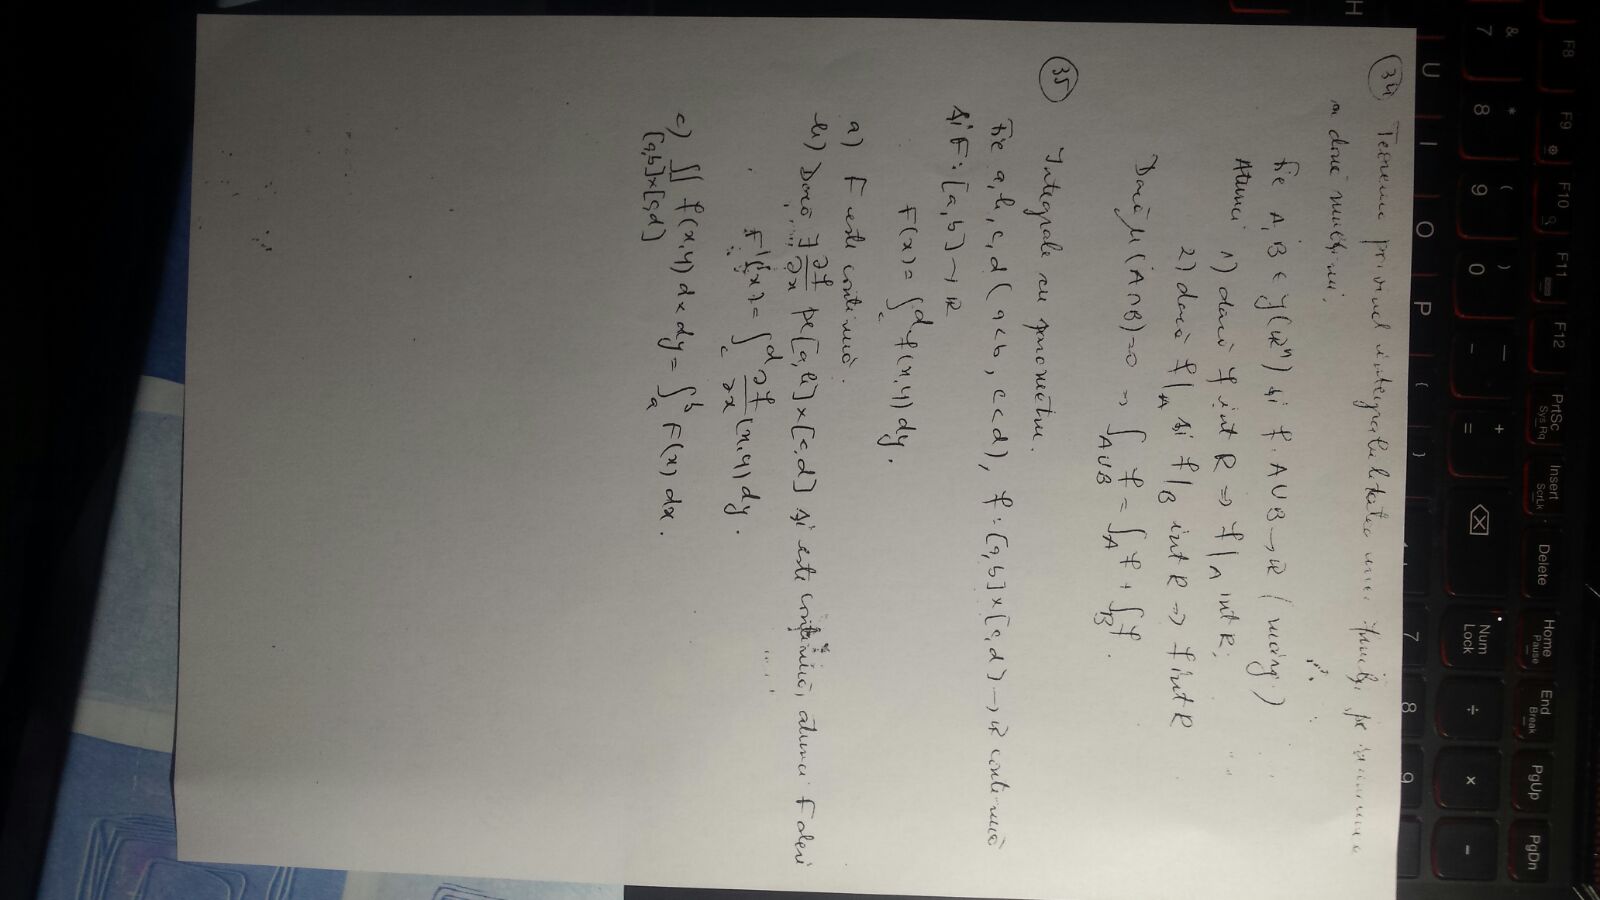 F8 F9 F10 F11 F12 PrtSc Insert Delete Home End PgUp PgDn
Sys Rq ScrLk Pause Break
& * ( ) — +
7 8 9 0 - = Num Lock ÷ × -
U I O P { } 7 8 9
H
34 Teorema privind integrabilitatea unei funcții pe
a două mulțimi.
Fie A, B ∈ J(ℝⁿ) și f: A∪B → ℝ (mărg.)
Atunci 1) dacă f int R ⇒ f|_A int R;
2) dacă f|_A și f|_B int R ⇒ f int R
Dacă μ(A∩B)=0 ⇒ ∫_{A∪B} f = ∫_A f + ∫_B f.
35 Integrale cu parametru.
Fie a, b, c, d (a<b, c<d), f: [a,b]×[c,d] → ℝ continuă
și F: [a,b] → ℝ
F(x)= ∫_c^d f(x,y) dy.
a) F este continuă.
b) Dacă ∃ ∂f/∂x pe [a,b]×[c,d] și este continuă, atunci F deri
F'(x)= ∫_c^d ∂f/∂x (x,y) dy.
c) ∬ f(x,y) dx dy = ∫_a^b F(x) dx.
[a,b]×[c,d]